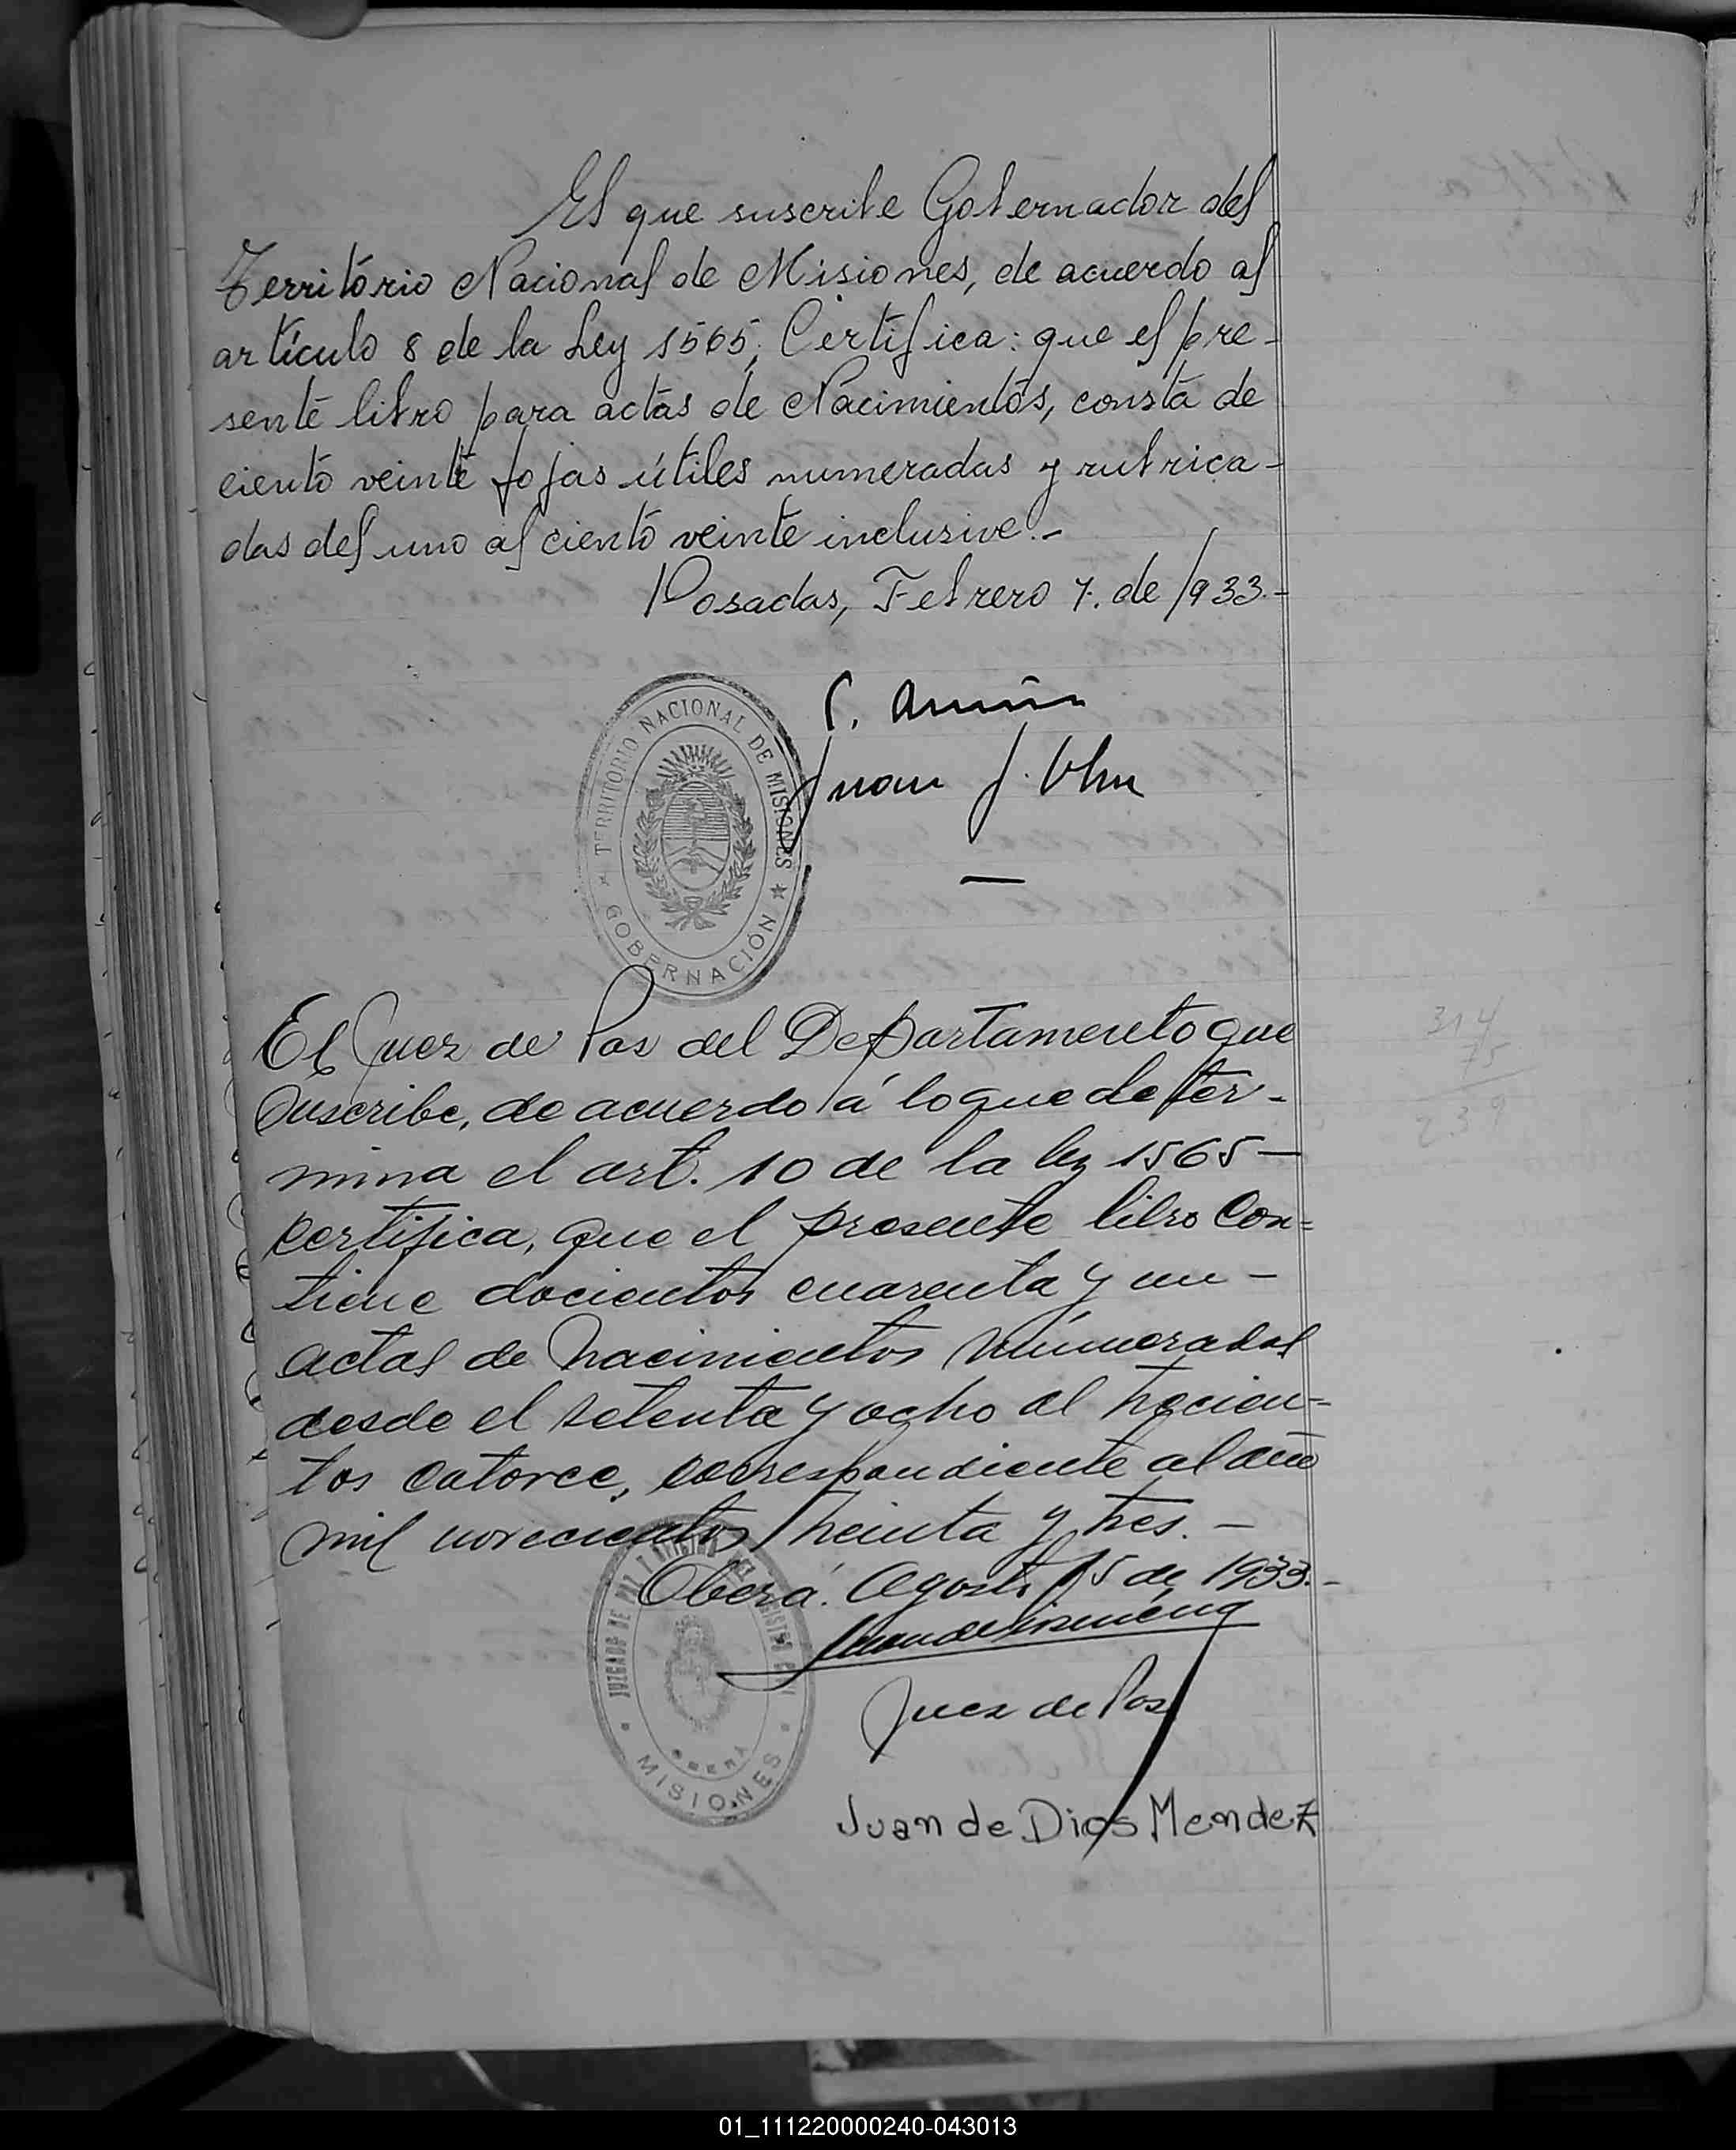 El que suscribe Gobernador del
Território Nacional de Misiones, de acuerdo al
artículo 8 de la Ley 1565; Certifica: que el pre-
sente libro para actas de Nacimientos, consta de
ciento veinte fojas útiles numeradas y rubrica-
das del uno al ciento veinte inclusive.-
Posadas, Febrero 7. de 1933.-
Juan J.
TERRITORIO NACIONAL DE MISIONES
GOBERNACIÓN
El Juez de Pas del Departamento que
Suscribe, de acuerdo á lo que deter-
mina el art. 10 de la ley 1565-
certifica, que el presente libro Con=
tiene docientos cuarenta y un-
actas de Nacimientos Númeradas
desde el setenta y ocho al trecien-
tos catorce, correspondiente al año
mil novecientos treinta y tres.-
Oberá. Agosto 15 de 1933.-
Juez de Pas
Juan de Dios Mendez
JUZGADO DE PAZ Y REGISTRO CIVIL
OBERÁ
MISIONES
314
75
239
01_111220000240-043013